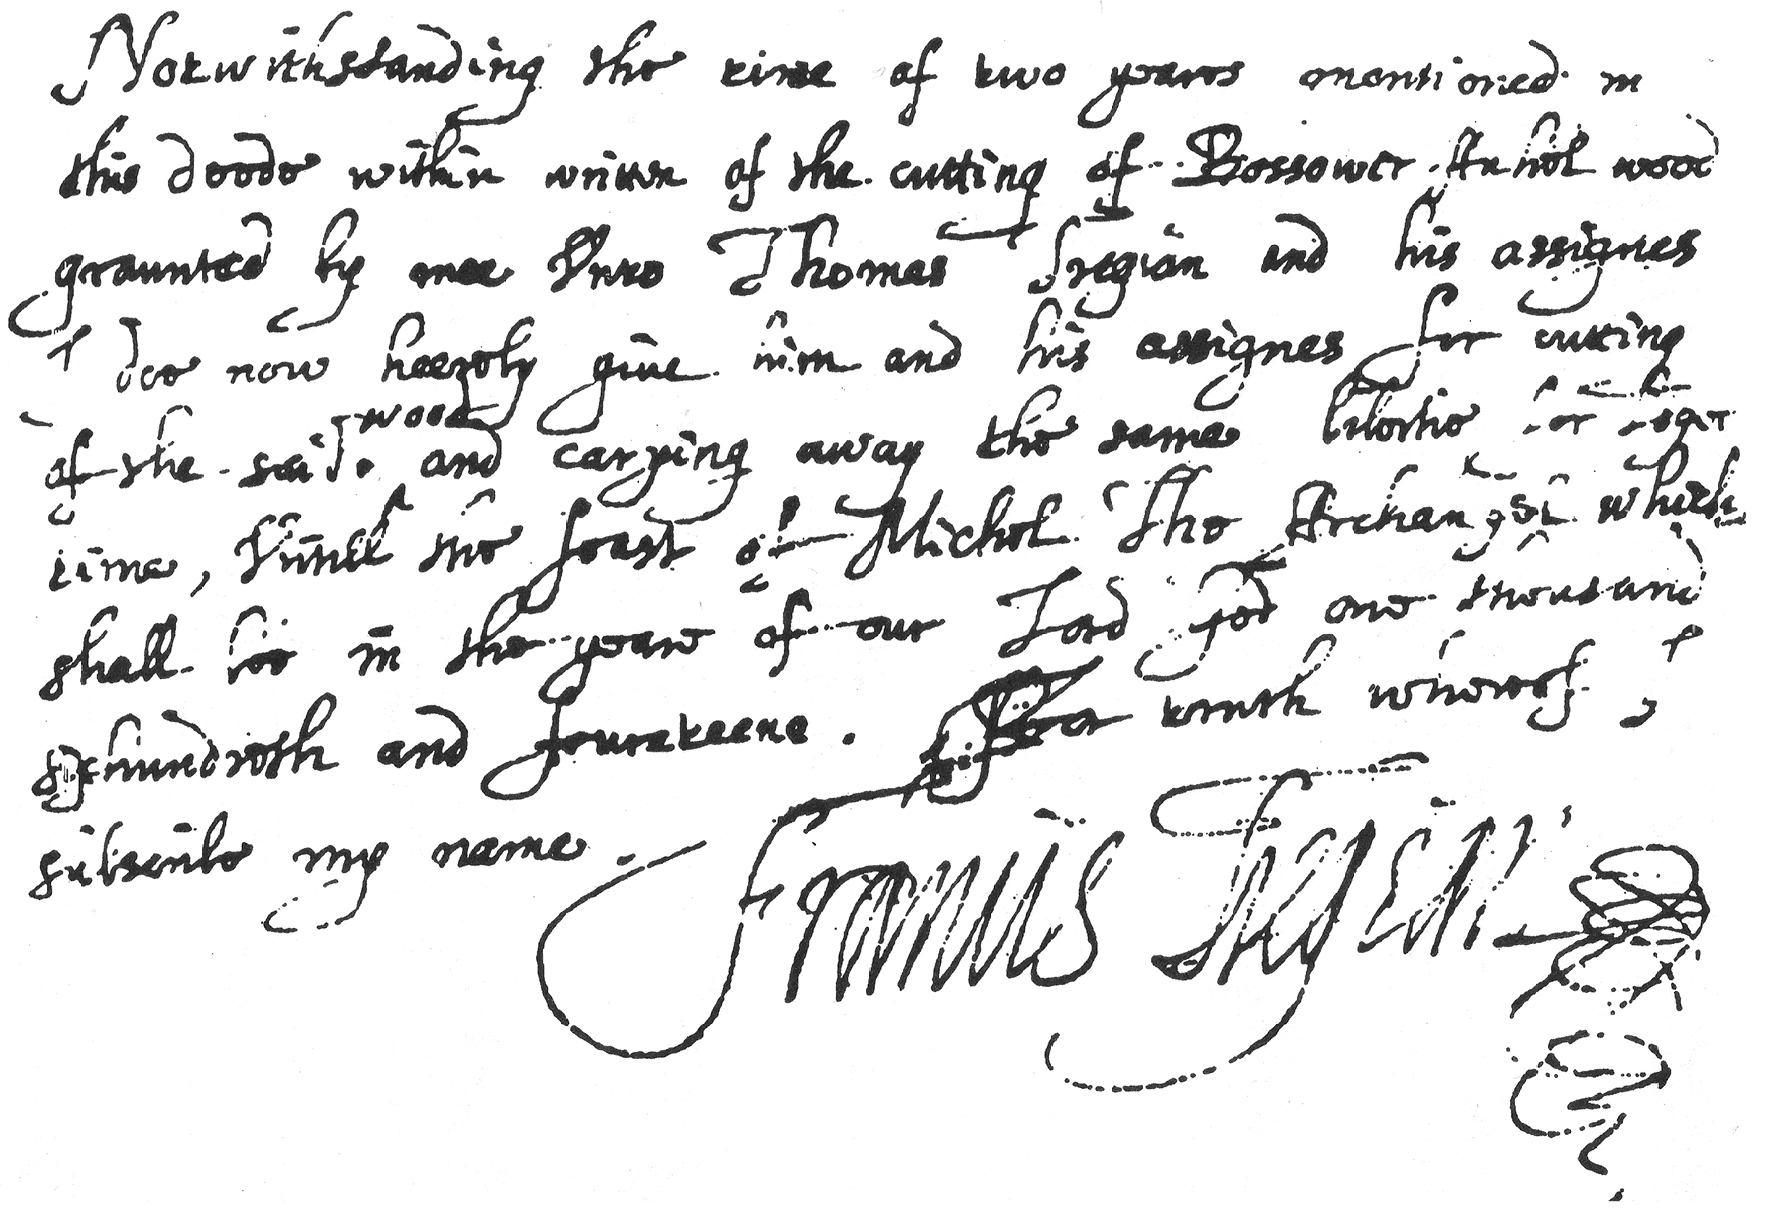 Notwithstanding the time of two years mentioned in
this deede within written of the cutting of Bossower wood
graunted by mee Vnto Thomas Tregian and his assignes
I doe now heereby give him and his assignes for cutting
of the said wood and carying away the same libertie for loger
time, Vntill the feast of Michel The Archangel which
shall bee in the yeare of our Lord god one thousand
six hundreth and foureteene. For truth whereof I
subscribe my name. Francis Tregian